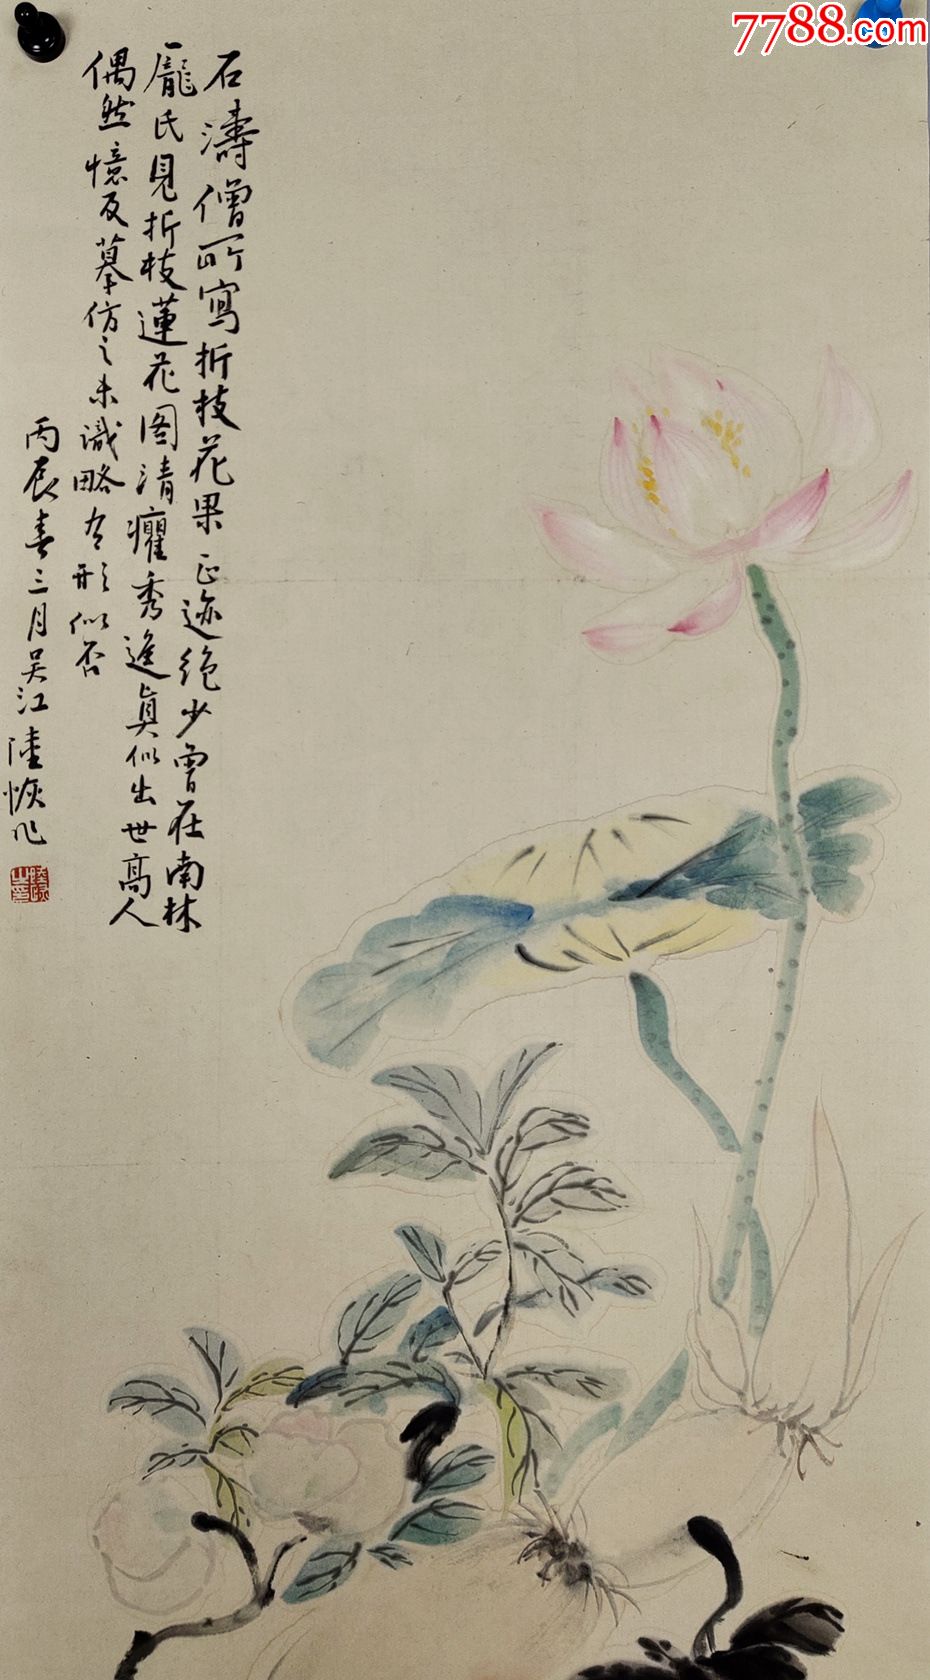 7788.com
石濤僧所寫折枝花果正迹绝少曾在南林
龐氏見折枝蓮花图清癯秀逸真似出世高人
偶然憶及摹仿之未識略有形似否
丙辰春三月吴江陸恢作